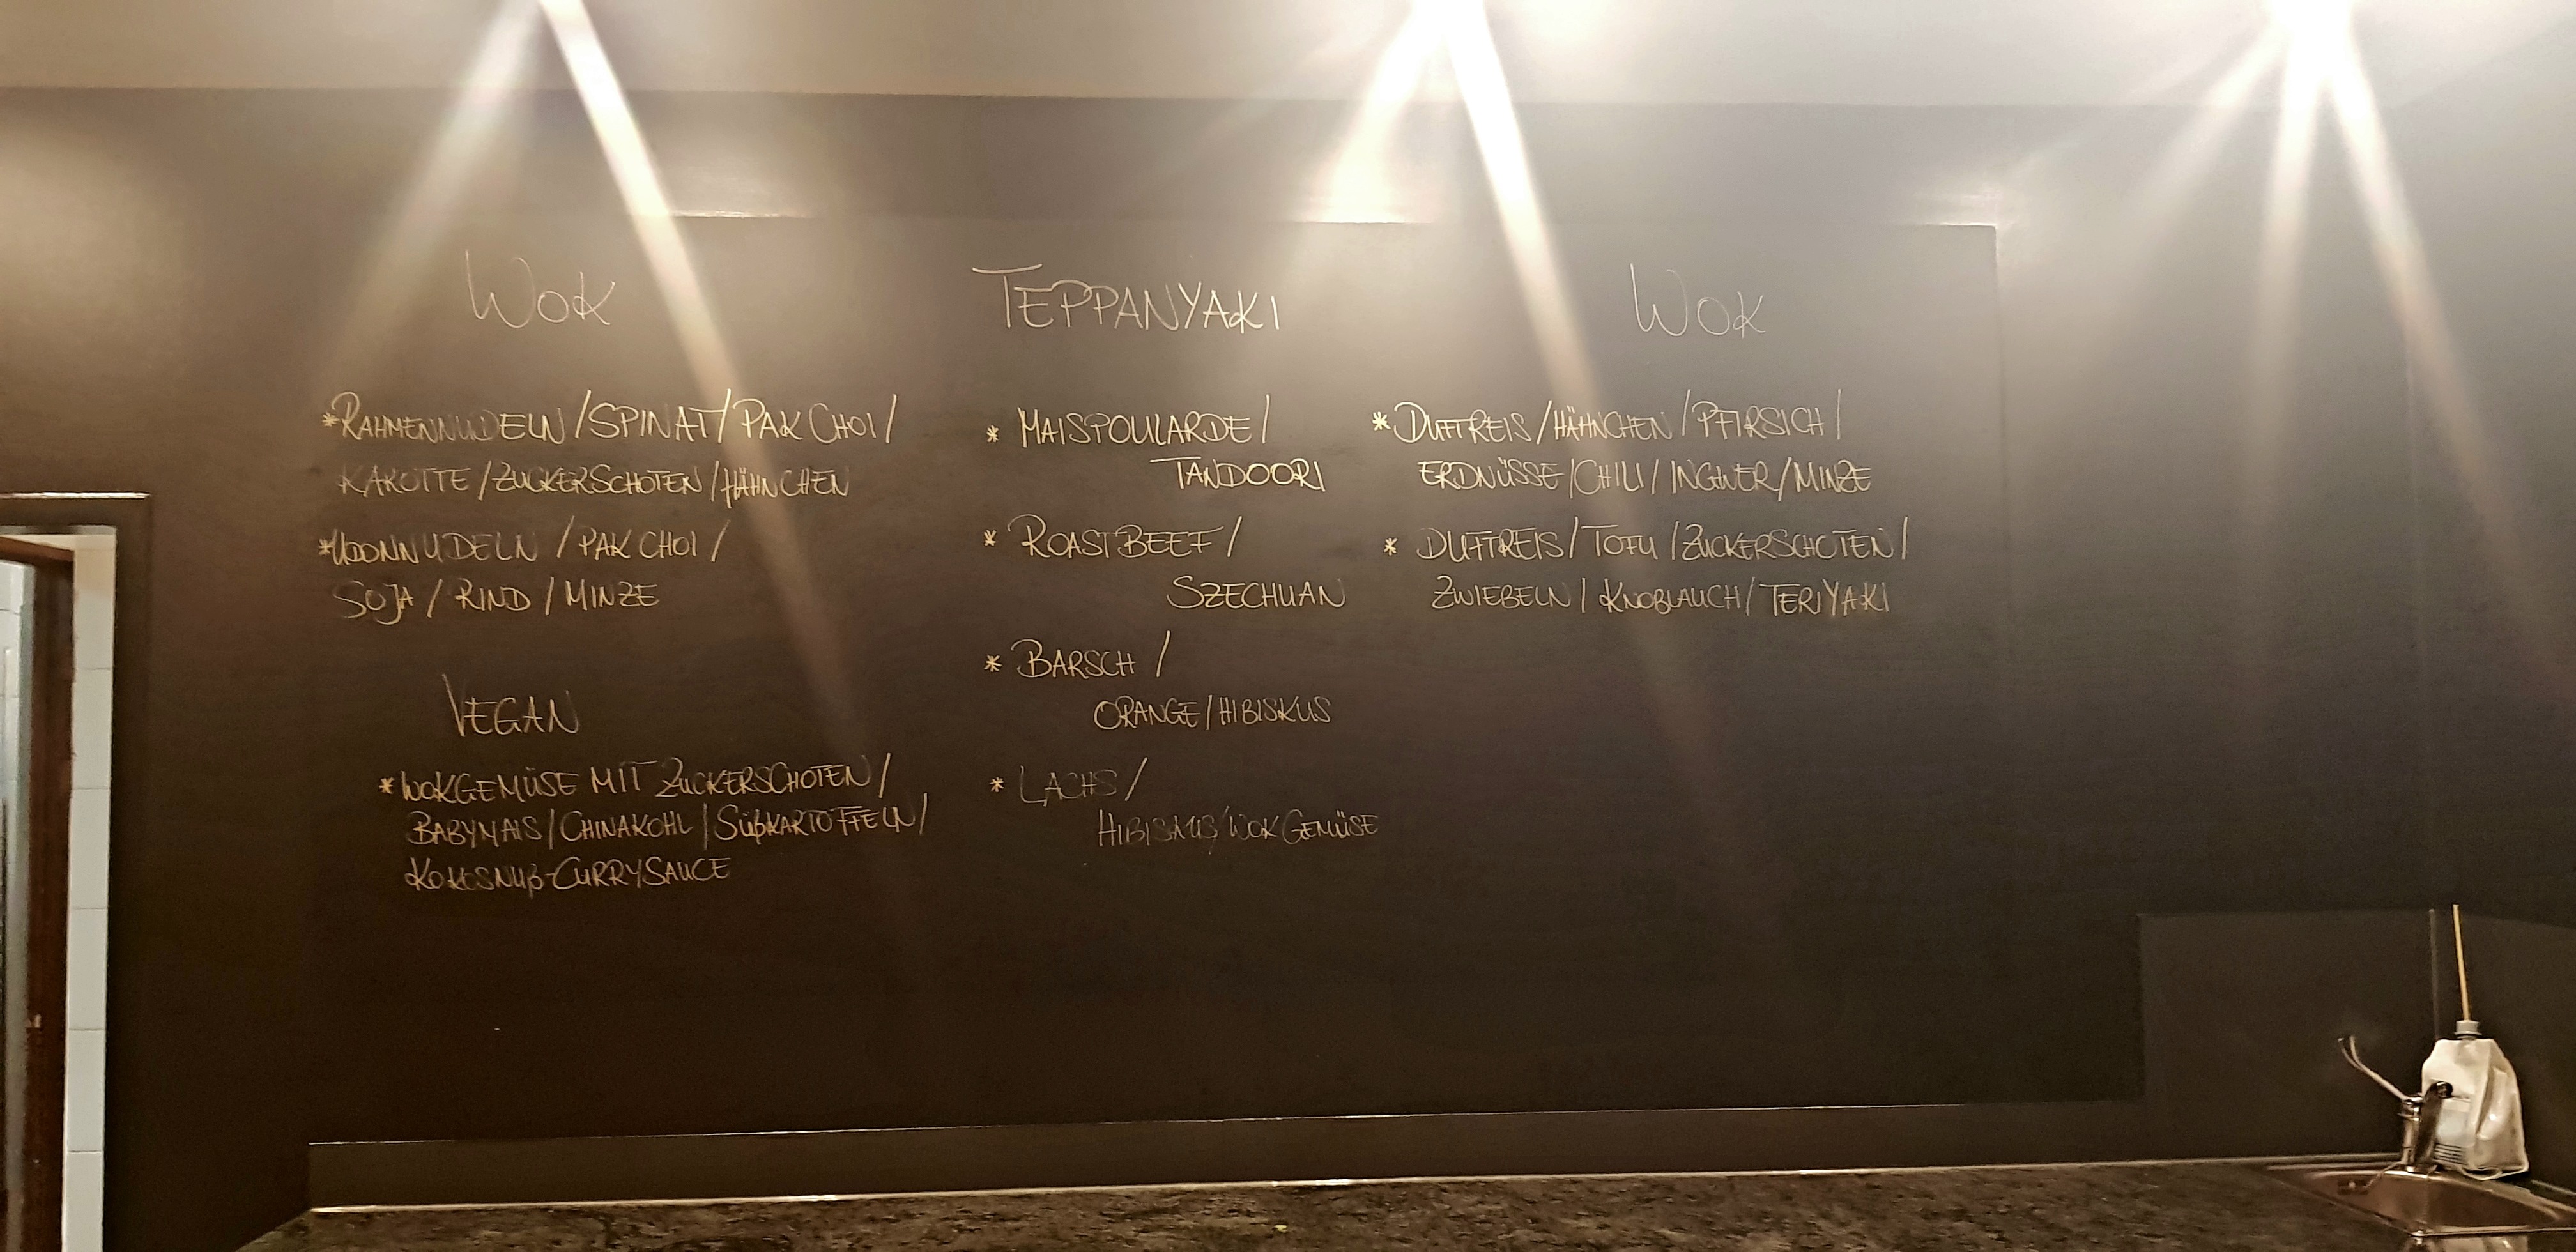 WOK
*RAHMENNUDELN/SPINAT/PAK CHOI/
KAROTTE/ZUCKERSCHOTEN/HÄHNCHEN
*UDONNUDELN/PAK CHOI/
SOJA/RIND/MINZE
VEGAN
*WOKGEMÜSE MIT ZUCKERSCHOTEN/
BABYMAIS/CHINAKOHL/SÜßKARTOFFELN/
KOKOSNUß-CURRYSAUCE
TEPPANYAKI
* MAISPOULARDE/
TANDOORI
* ROASTBEEF/
SZECHUAN
* BARSCH/
ORANGE/HIBISKUS
* LACHS/
HIBISKUS/WOKGEMÜSE
WOK
*DUFTREIS/HÄHNCHEN/PFIRSICH/
ERDNÜSSE/CHILI/INGWER/MINZE
* DUFTREIS/TOFU/ZUCKERSCHOTEN/
ZWIEBELN/KNOBLAUCH/TERIYAKI